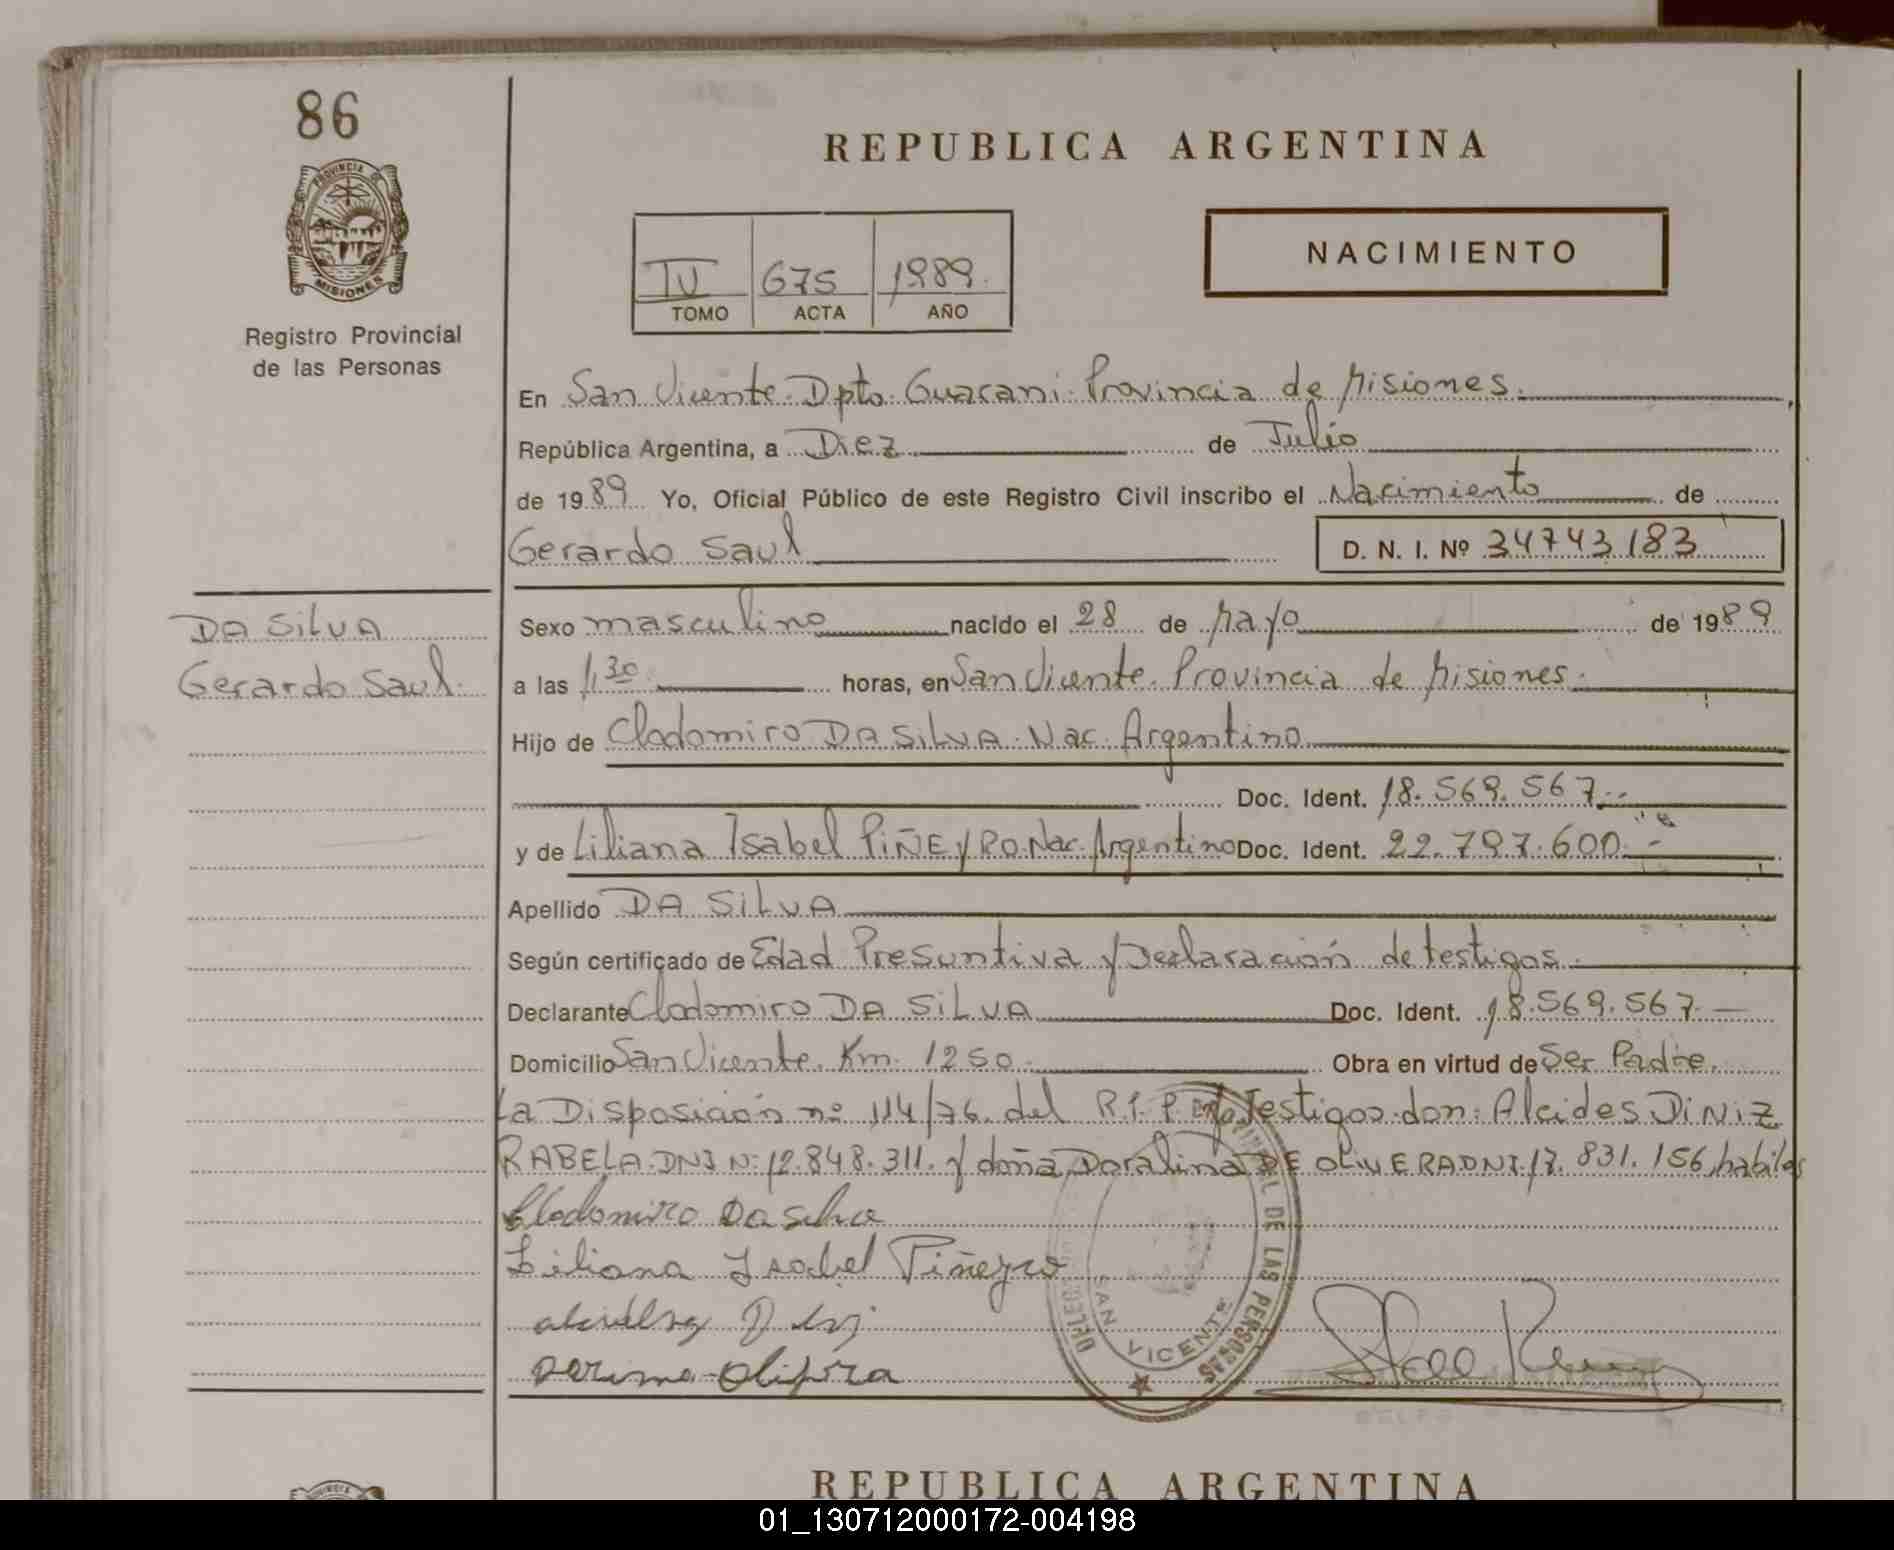 86
REPUBLICA ARGENTINA
PROVINCIA DE
MISIONES
Registro Provincial
de las Personas
IV 675 1989.
TOMO ACTA AÑO
NACIMIENTO
En San Vicente. Dpto. Guarani. Provincia de Misiones.
República Argentina, a Diez de Julio
de 1989 Yo, Oficial Público de este Registro Civil inscribo el Nacimiento de
Gerardo Saul D. N. I. Nº 34743183
DA SILVA
Gerardo Saul.
Sexo masculino nacido el 28 de Mayo de 1989
a las 1,30 horas, en San Vicente. Provincia de Misiones.
Hijo de Clodomiro DA SILVA. Nac. Argentino
Doc. Ident. 18.569.567.-
y de Liliana Isabel PIÑEYRO. Nac. Argentino Doc. Ident. 22.797.600.-
Apellido DA SILVA
Según certificado de Edad Presuntiva y Declaración de testigos.
Declarante Clodomiro DA SILVA Doc. Ident. 18.569.567.-
Domicilio San Vicente. Km. 1250. Obra en virtud de Ser Padre.
La Disposición nº 114/76. del R.P.P. Testigos don: Alcides DINIZ
RABELA. DNI Nº 12.848.311. y doña Doralina DE OLIVERA DNI. 17.831.156, habiles
Clodomiro Da Silva
Liliana Isabel Piñeyro
SAN VICENTE
DE LAS PERSONAS
REPUBLICA ARGENTINA
01_130712000172-004198